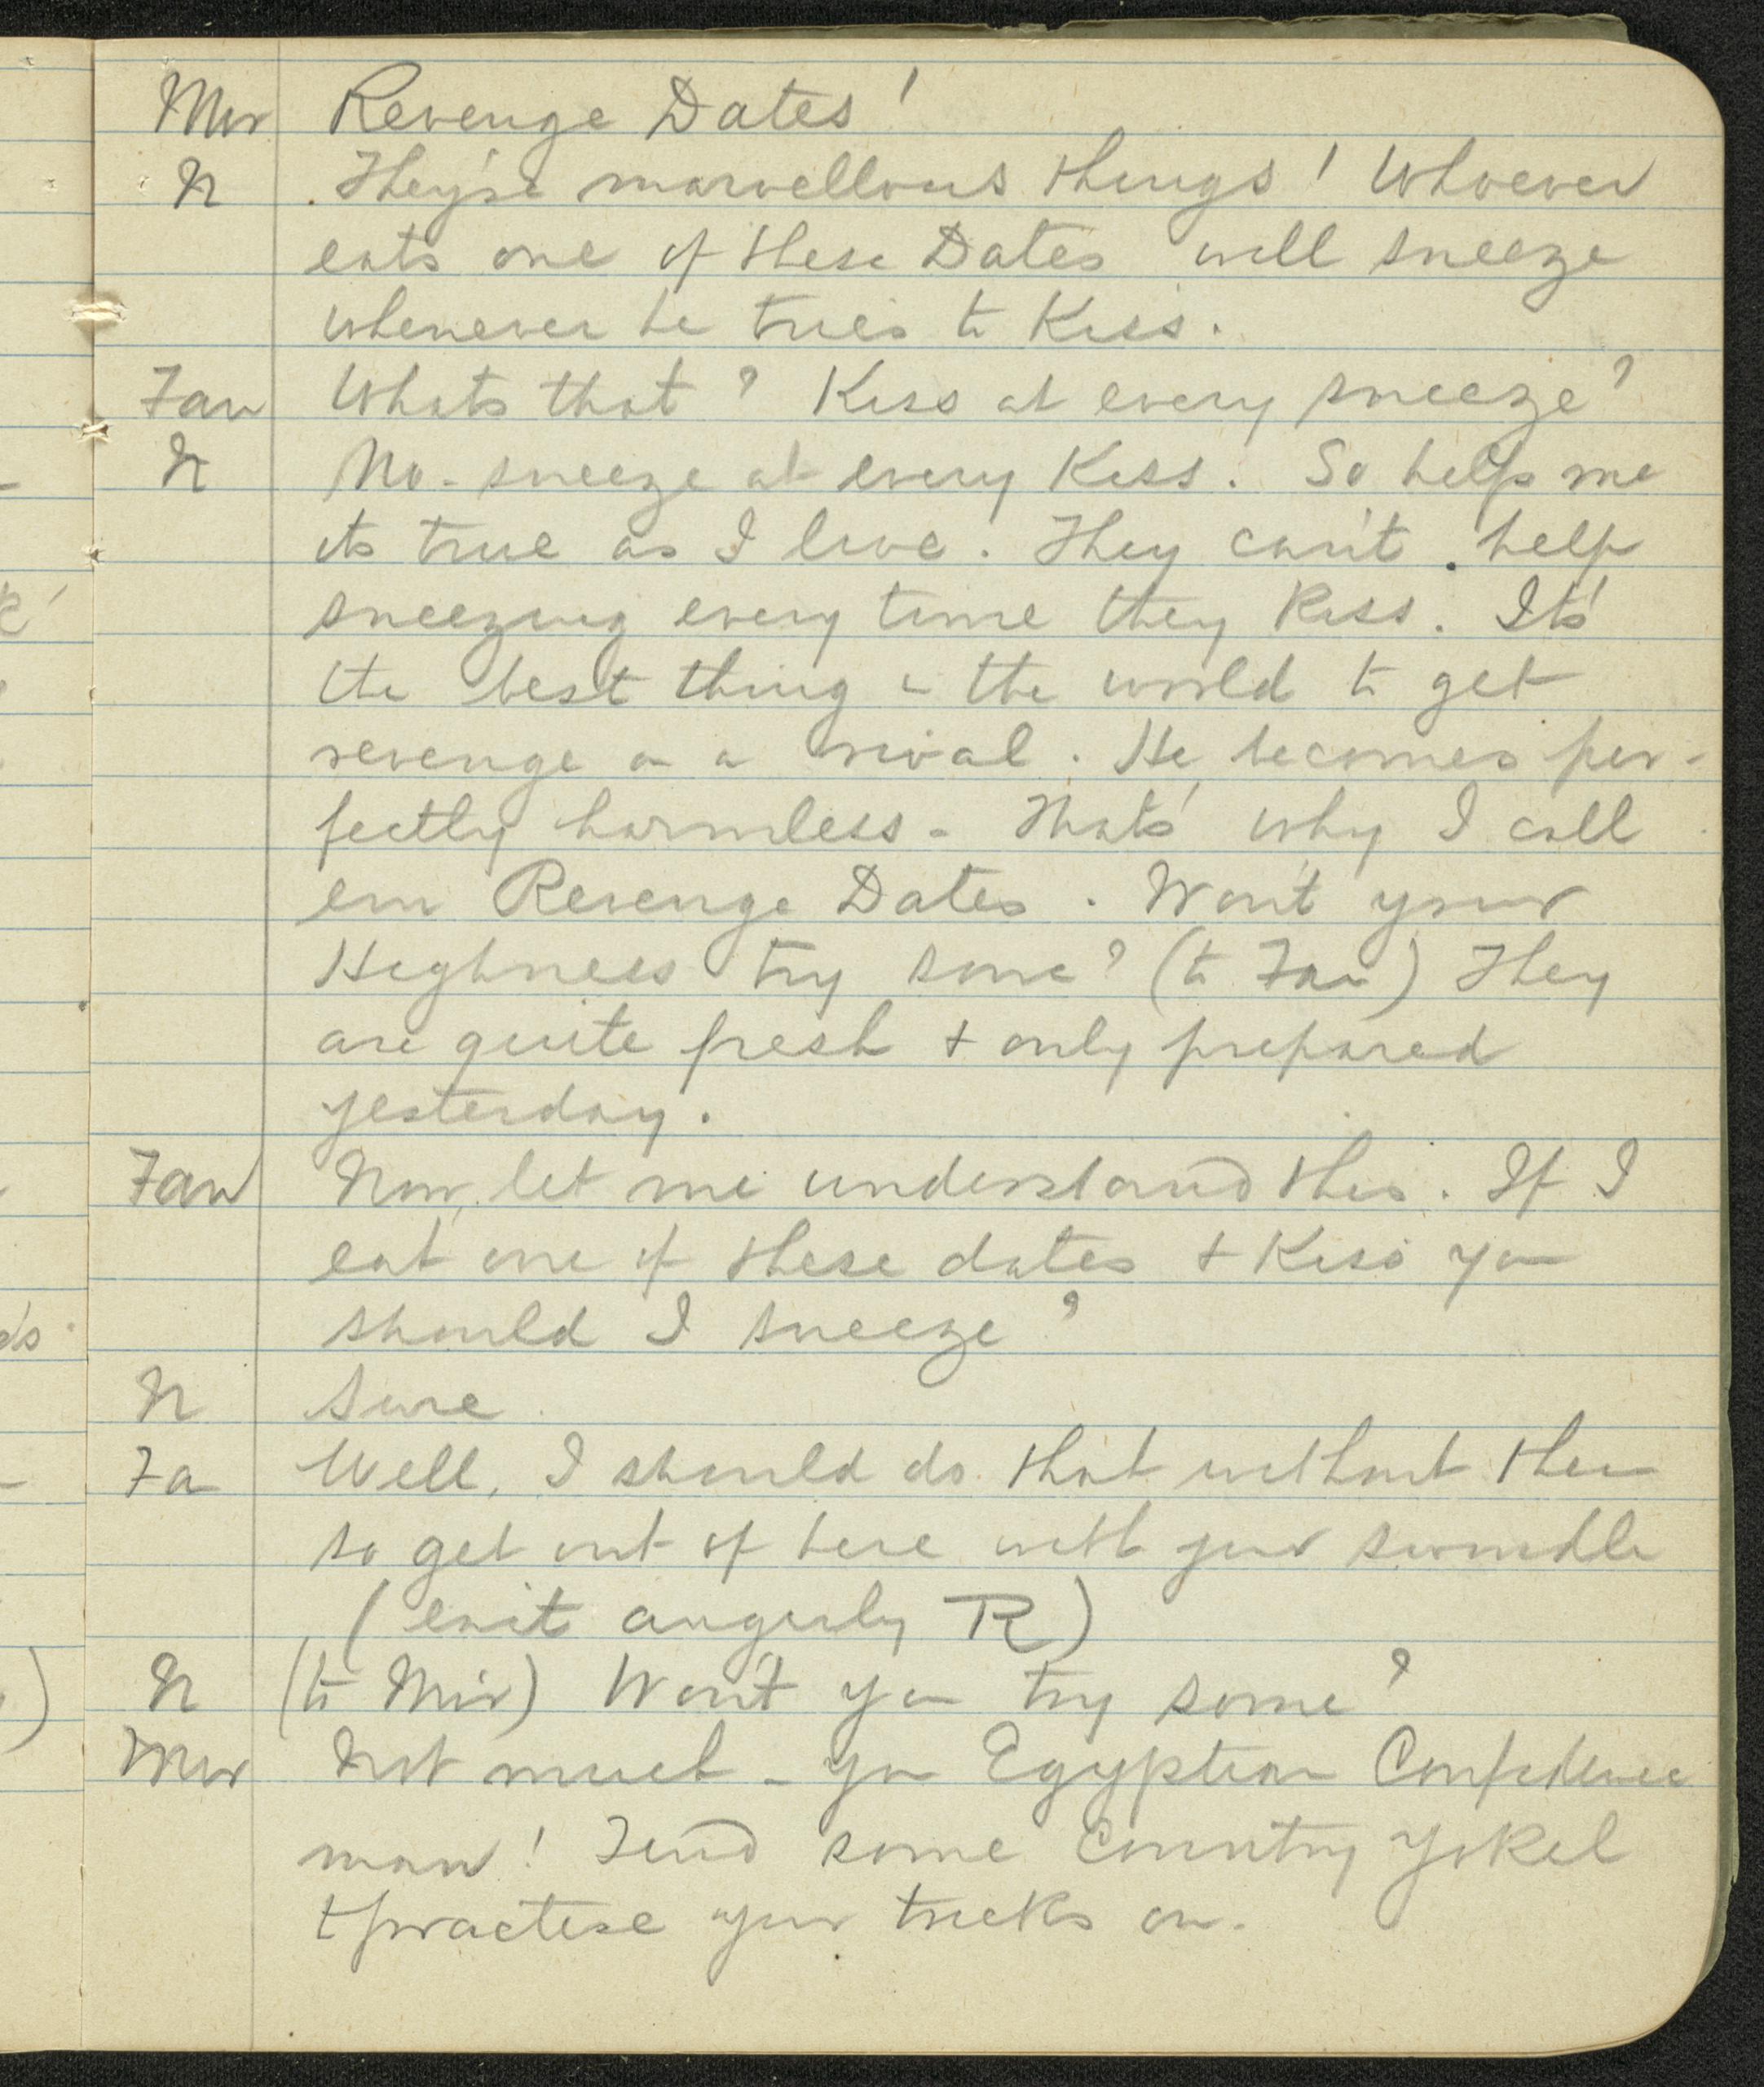 Mir Revenge Dates!
N They're marvellous things! Whoever
eats one of these Dates will sneeze
whenever he tries to Kiss.
Fan Whats that? Kiss at every sneeze?
N No - sneeze at every Kiss. So help me
its true as I live. They can't help
sneezing every time they Kiss. It's
the best thing in the world to get
revenge on a rival. He becomes per-
fectly harmless - That's why I call
em Revenge Dates. Won't your
Highness try some? (to Fan) They
are quite fresh + only prepared
yesterday.
Fan Now, let me understand this. If I
eat one of these dates + Kiss you
should I sneeze?
N Sure
Fa Well, I should do that without them
so get out of here with your swindle
(exit angrily R)
N (to Mir) Won't you try some?
Mir Not much - you Egyptian Confidence
man! Find some Country Yokel
to practise your tricks on.